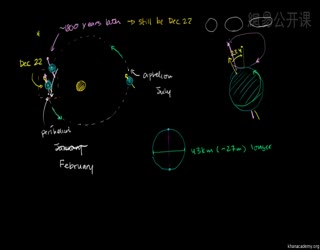 ~1800 years later → still be Dec 22
Dec 22
aphelion
July
perihelion
January
February
43km (~27mi) longer
khanacademy.org